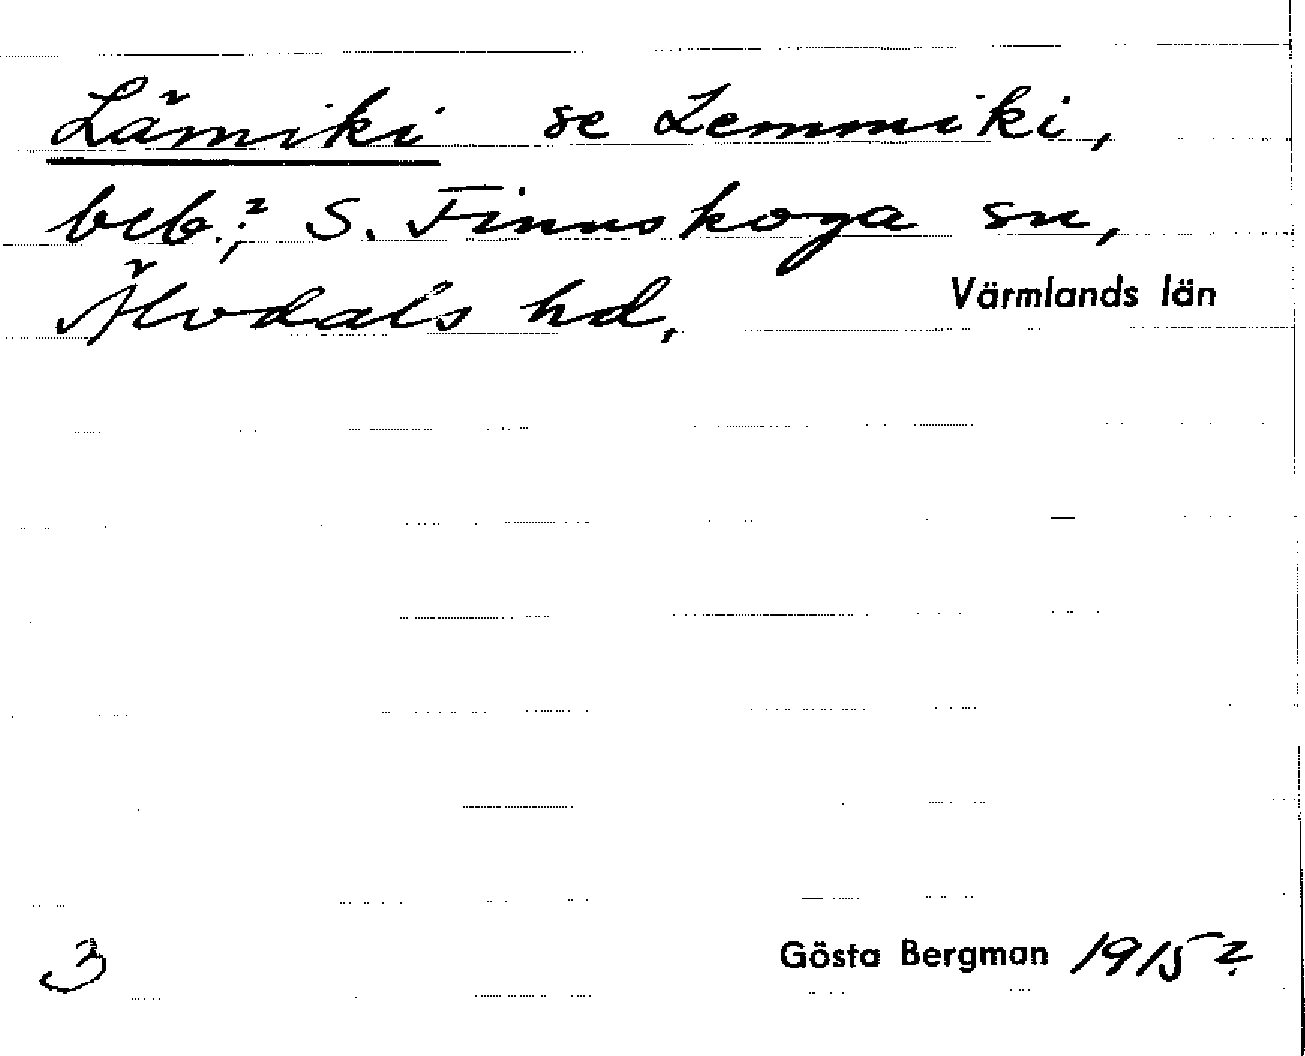 Lämiki se Lemmiki,
beb.?, S. Finnskoga sn,
Älvdals hd. Värmlands län
3 Gösta Bergman 1915?